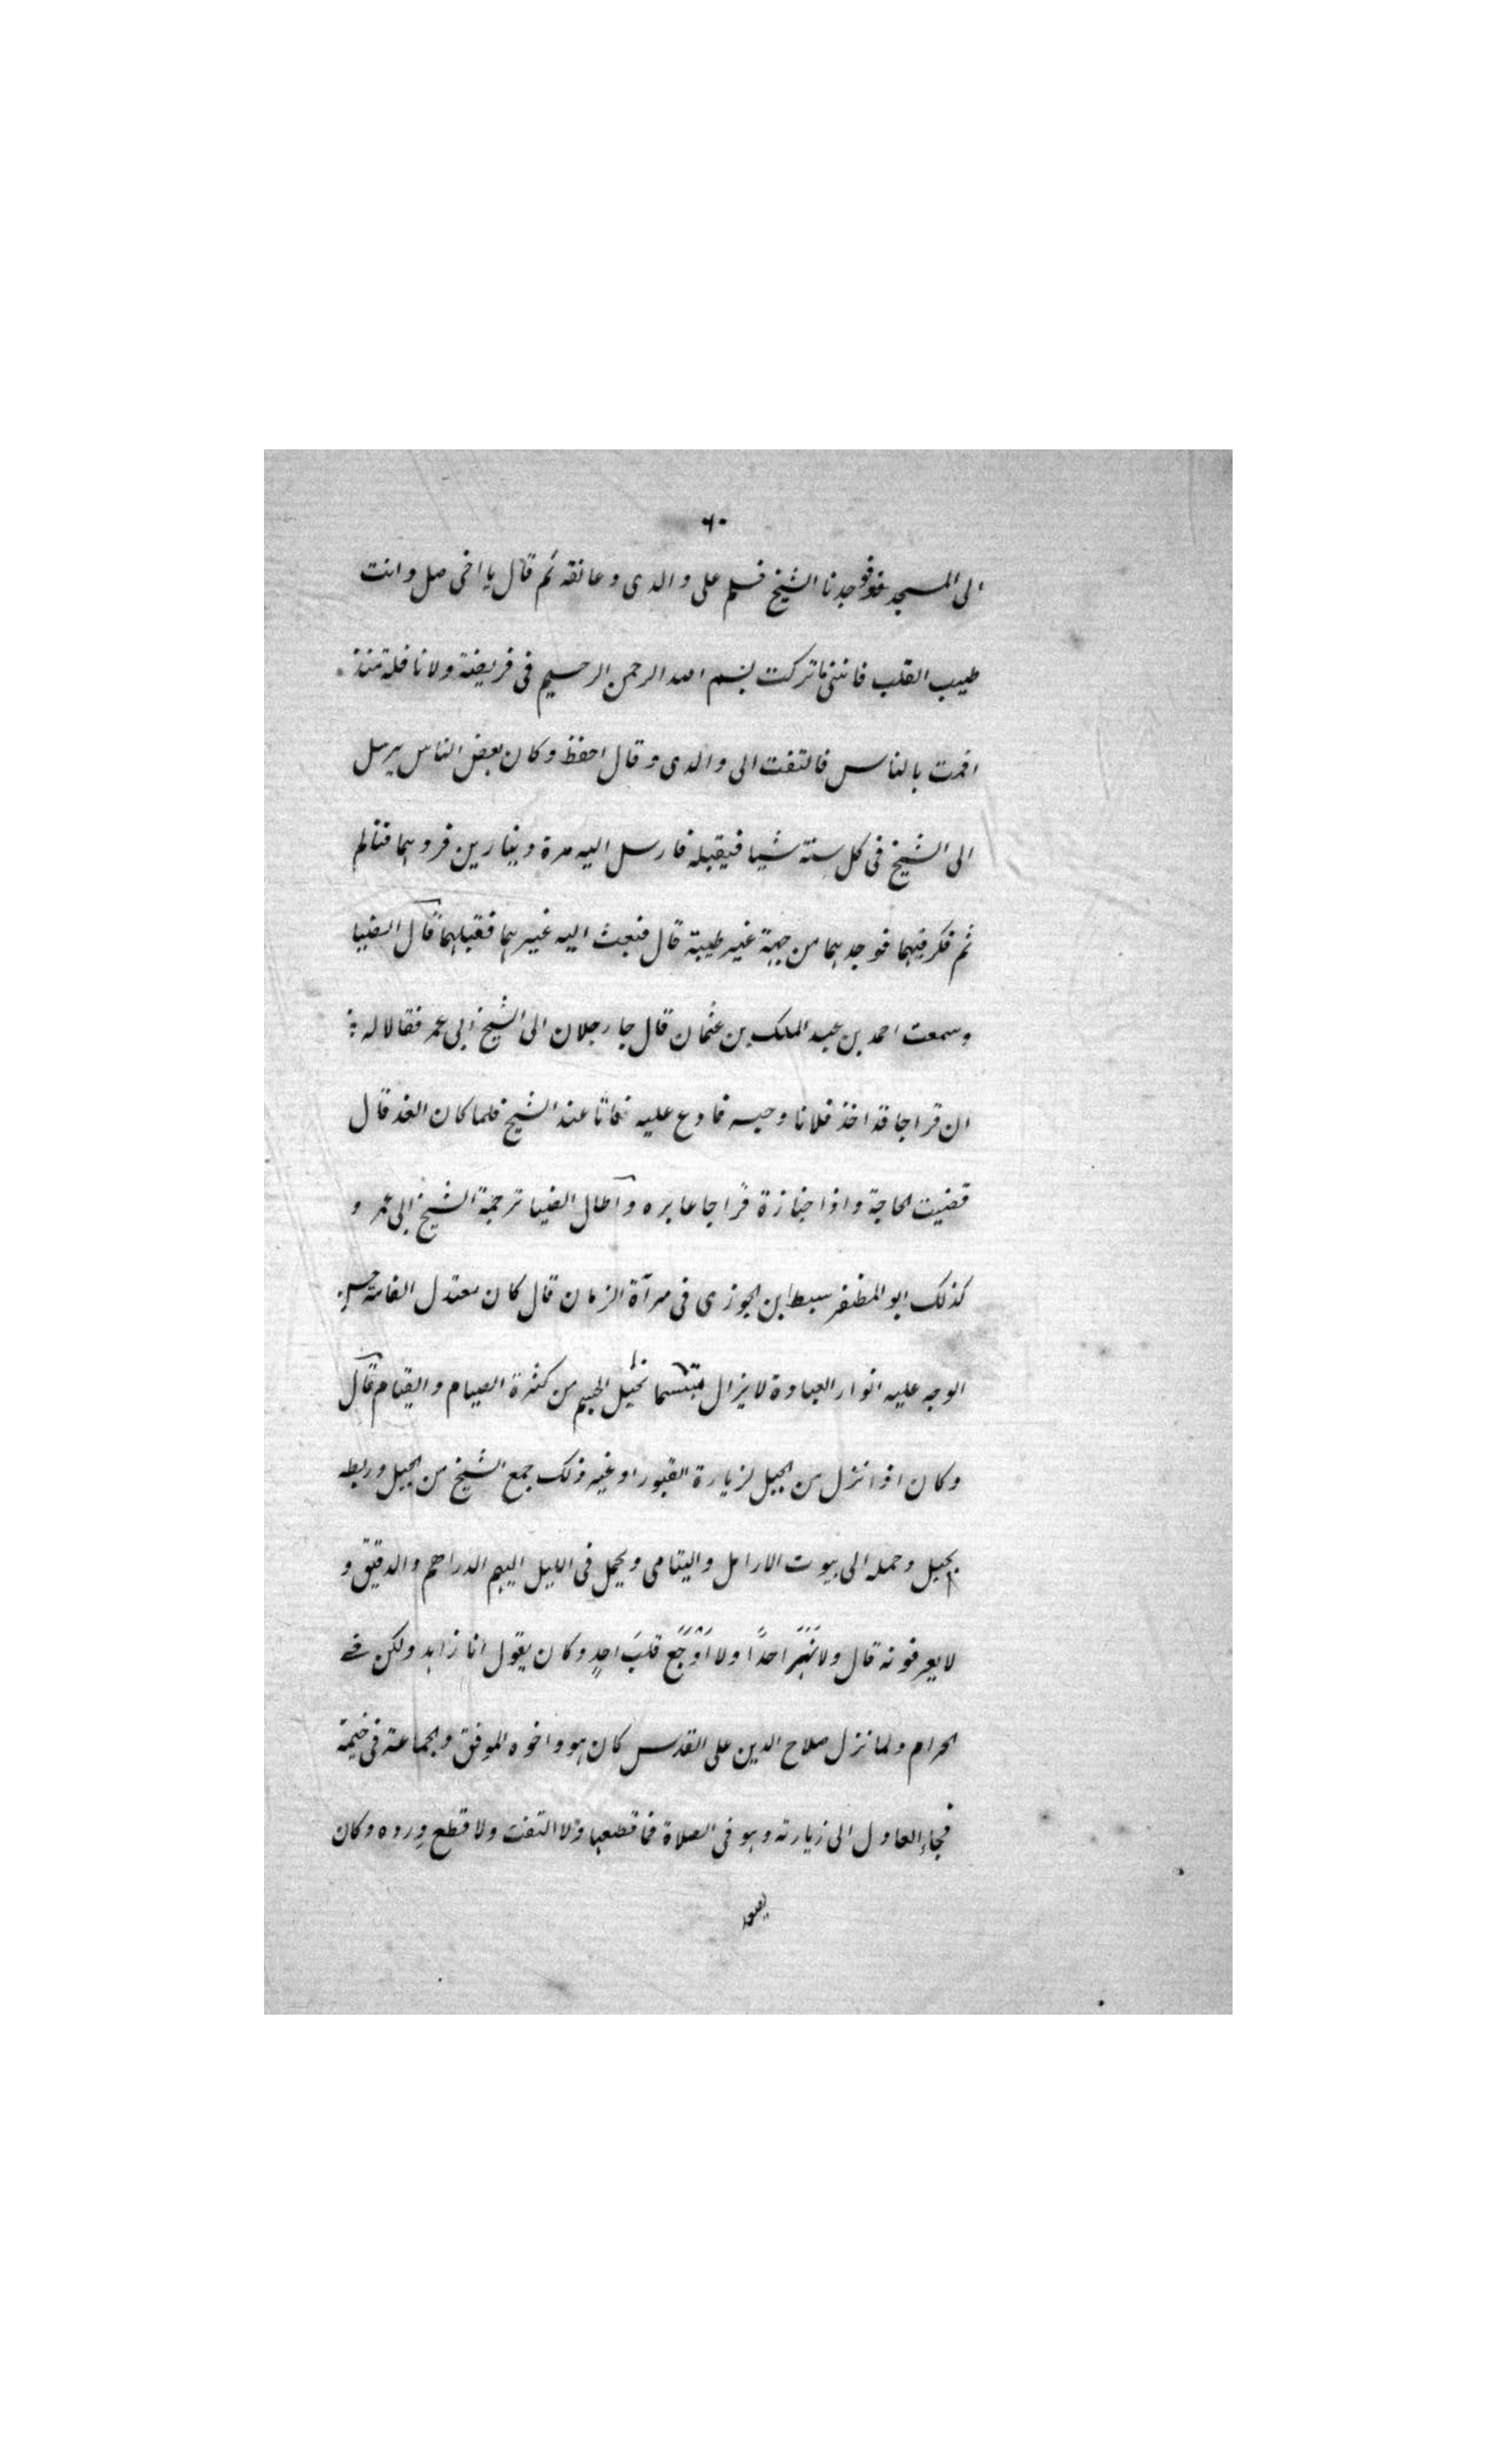 ٦٠
الى المسجد فوجدنا الشيخ فسلم على والدى وعانقه ثم قال يا اخى صل وانت
طيب القلب فاننى ما تركت بسم الله الرحمن الرحيم فى فريضة ولا نافلة منذ
اممت بالناس فالتفت الى والدى وقال احفظ وكان بعض الناس يرسل
الى الشيخ فى كل سنة شيا فيقبله فارسل اليه مرة دينارين فردهما فتالم
ثم فكر فيهما فوجدهما من جهة غير طيبة قال فبعث اليه غيرهما فقبلهما قال الضيا
وسمعت احمد بن عبد الملك بن عثمان قال جا رجلان الى الشيخ ابى عمر فقالا له
ان قراجا قد اخذ فلانا وحبسه فادع عليه فباتا عند الشيخ فلما كان الغد قال
قضيت الحاجة واذا جنازة قراجا عابره واطال الضيا ترجمة الشيخ ابى عمر و
كذلك ابو المظفر سبط ابن الجوزى فى مرآة الزمان قال كان معتدل القامة حسن
الوجه عليه انوار العبادة لا يزال متبسما نحيل الجسم من كثرة الصيام والقيام قال
وكان اذا نزل من الجبل لزيارة القبور او غيره ذلك جمع الشيخ من الجبل وربطه
بحبل وحمله الى بيوت الارامل واليتامى ويحمل فى الليل اليهم الدراهم والدقيق و
لا يعرفونه قال ولا نهر احدًا ولا اوجع قلب احدٍ وكان يقول انا زاهد ولكن فى
الحرام ولما نزل صلاح الدين على القدس كان هو واخوه الموفق والجماعة فى خيمة
فجاء العادل الى زيارته وهو فى الصلاة فما قطعها ولا التفت ولا قطع ورده وكان
يصعد